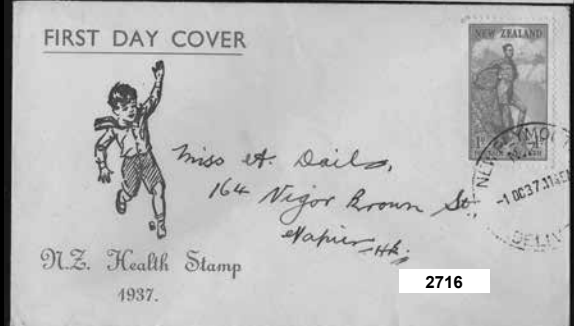 FIRST DAY COVER
NEW ZEALAND
Miss A. Dails,
164 Vigor Brown St.
Napier HB.
NEW PLYMOUTH
-1 OC 37. 11
DELIV
N.Z. Health Stamp
1937.
2716